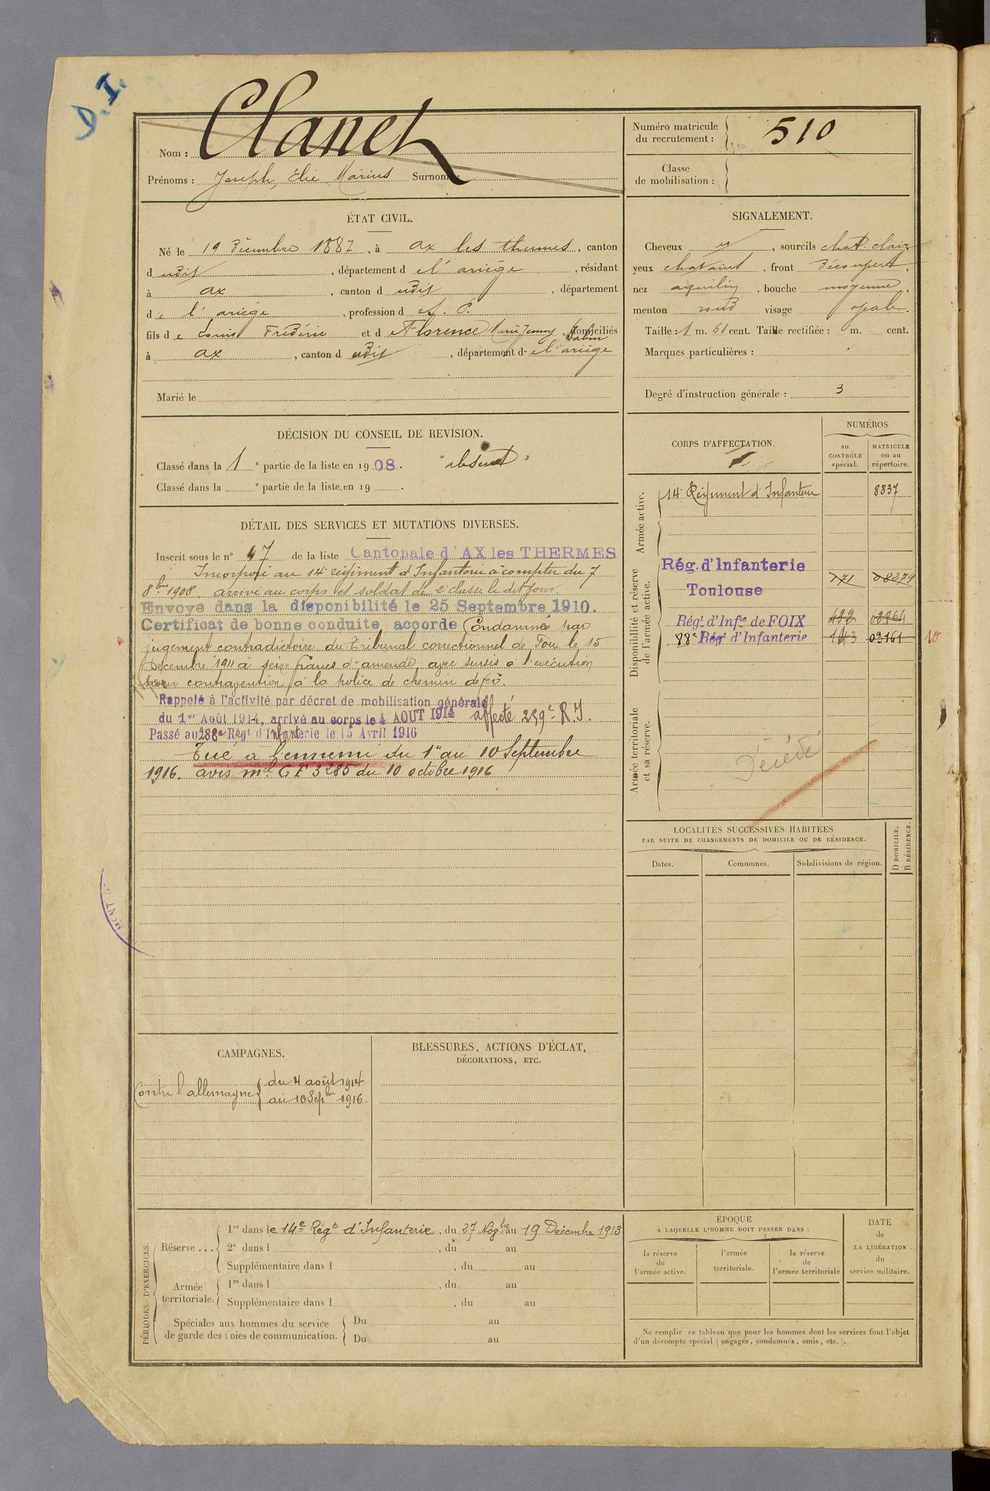 D.I.
Nom : Clanet
Prénoms : Joseph, Élie Marius Surnom :
Numéro matricule
du recrutement : 510
Classe
de mobilisation :
ÉTAT CIVIL.
Né le 19 Décembre 1887, à Ax les thermes, canton
d udit, département d e l'ariège, résidant
à ax, canton d udit, département
d e l'ariège, profession d
fils d e Louis Frédéric et d Florence Marie Jeanne, domiciliés
à ax, canton d udit, département d e l'ariège
Marié le
SIGNALEMENT.
Cheveux , sourcils chat. clair
yeux chatains, front Découvert,
nez aquilin, bouche moyenne,
menton rond visage ovale.
Taille : 1 m. 61 cent. Taille rectifiée : m. cent.
Marques particulières :
Degré d'instruction générale : 3
DÉCISION DU CONSEIL DE REVISION.
Classé dans la 1 e partie de la liste en 1908. "absent"
Classé dans la e partie de la liste en 19 .
DÉTAIL DES SERVICES ET MUTATIONS DIVERSES.
Inscrit sous le n° 47 de la liste Cantonale d'AX les THERMES
Incorporé au 14e régiment d'Infanterie à compter du 7
8bre 1908. arrivé au corps et soldat de 2e classe le dit jour.
Envoyé dans la disponibilité le 25 Septembre 1910.
Certificat de bonne conduite accordé Condamné par
jugement contradictoire du Tribunal correctionnel de Foix le 15
Décembre 1911 à seize francs d'amende, avec sursis à l'exécution
pour contravention à la police de chemin de fer.
Rappelé à l'activité par décret de mobilisation générale
du 1er Août 1914, arrivé au corps le 4 AOUT 1914 affecté 259e R.I.
Passé au 288e Régt d'Infanterie le 15 Avril 1916
Tué à l'ennemi du 1er au 10 Septembre
1916. avis mel CF 3285 du 10 octobre 1916
CORPS D'AFFECTATION.
NUMÉROS
au
CONTRÔLE
spécial.
MATRICULE
ou au
répertoire.
Armée active.
14e Régiment d'Infanterie 8837
Disponibilité et réserve
de l'armée active.
Rég. d'Infanterie
Toulouse
Rég. d'Infie de FOIX
88e Régt d'Infanterie 03161 10
Armée territoriale
et sa réserve.
Décédé
LOCALITÉS SUCCESSIVES HABITÉES
PAR SUITE DE CHANGEMENTS DE DOMICILE OU DE RÉSIDENCE.
Dates.
Communes.
Subdivisions de région.
D DOMICILE.
R RÉSIDENCE.
CAMPAGNES.
Contre l'allemagne du 4 août 1914
au 10 Sepbre 1916.
BLESSURES, ACTIONS D'ÉCLAT,
DÉCORATIONS, ETC.
PÉRIODES D'EXERCICES.
Réserve ...
1re dans le 14e Régt d'Infanterie, du 27 Nogbre au 19 Décembre 1913
2e dans l , du au
Supplémentaire dans l , du au
Armée
territoriale.
1re dans l , du au
Supplémentaire dans l , du au
Spéciales aux hommes du service
de garde des voies de communication.
Du au
Du au
ÉPOQUE
A LAQUELLE L'HOMME DOIT PASSER DANS :
la réserve
de
l'armée active.
l'armée
territoriale.
la réserve
de
l'armée territoriale
DATE
de
LA LIBÉRATION
du
service militaire.
Ne remplir ce tableau que pour les hommes dont les services font l'objet
d'un décompte spécial (engagés, condamnés, omis, etc.).